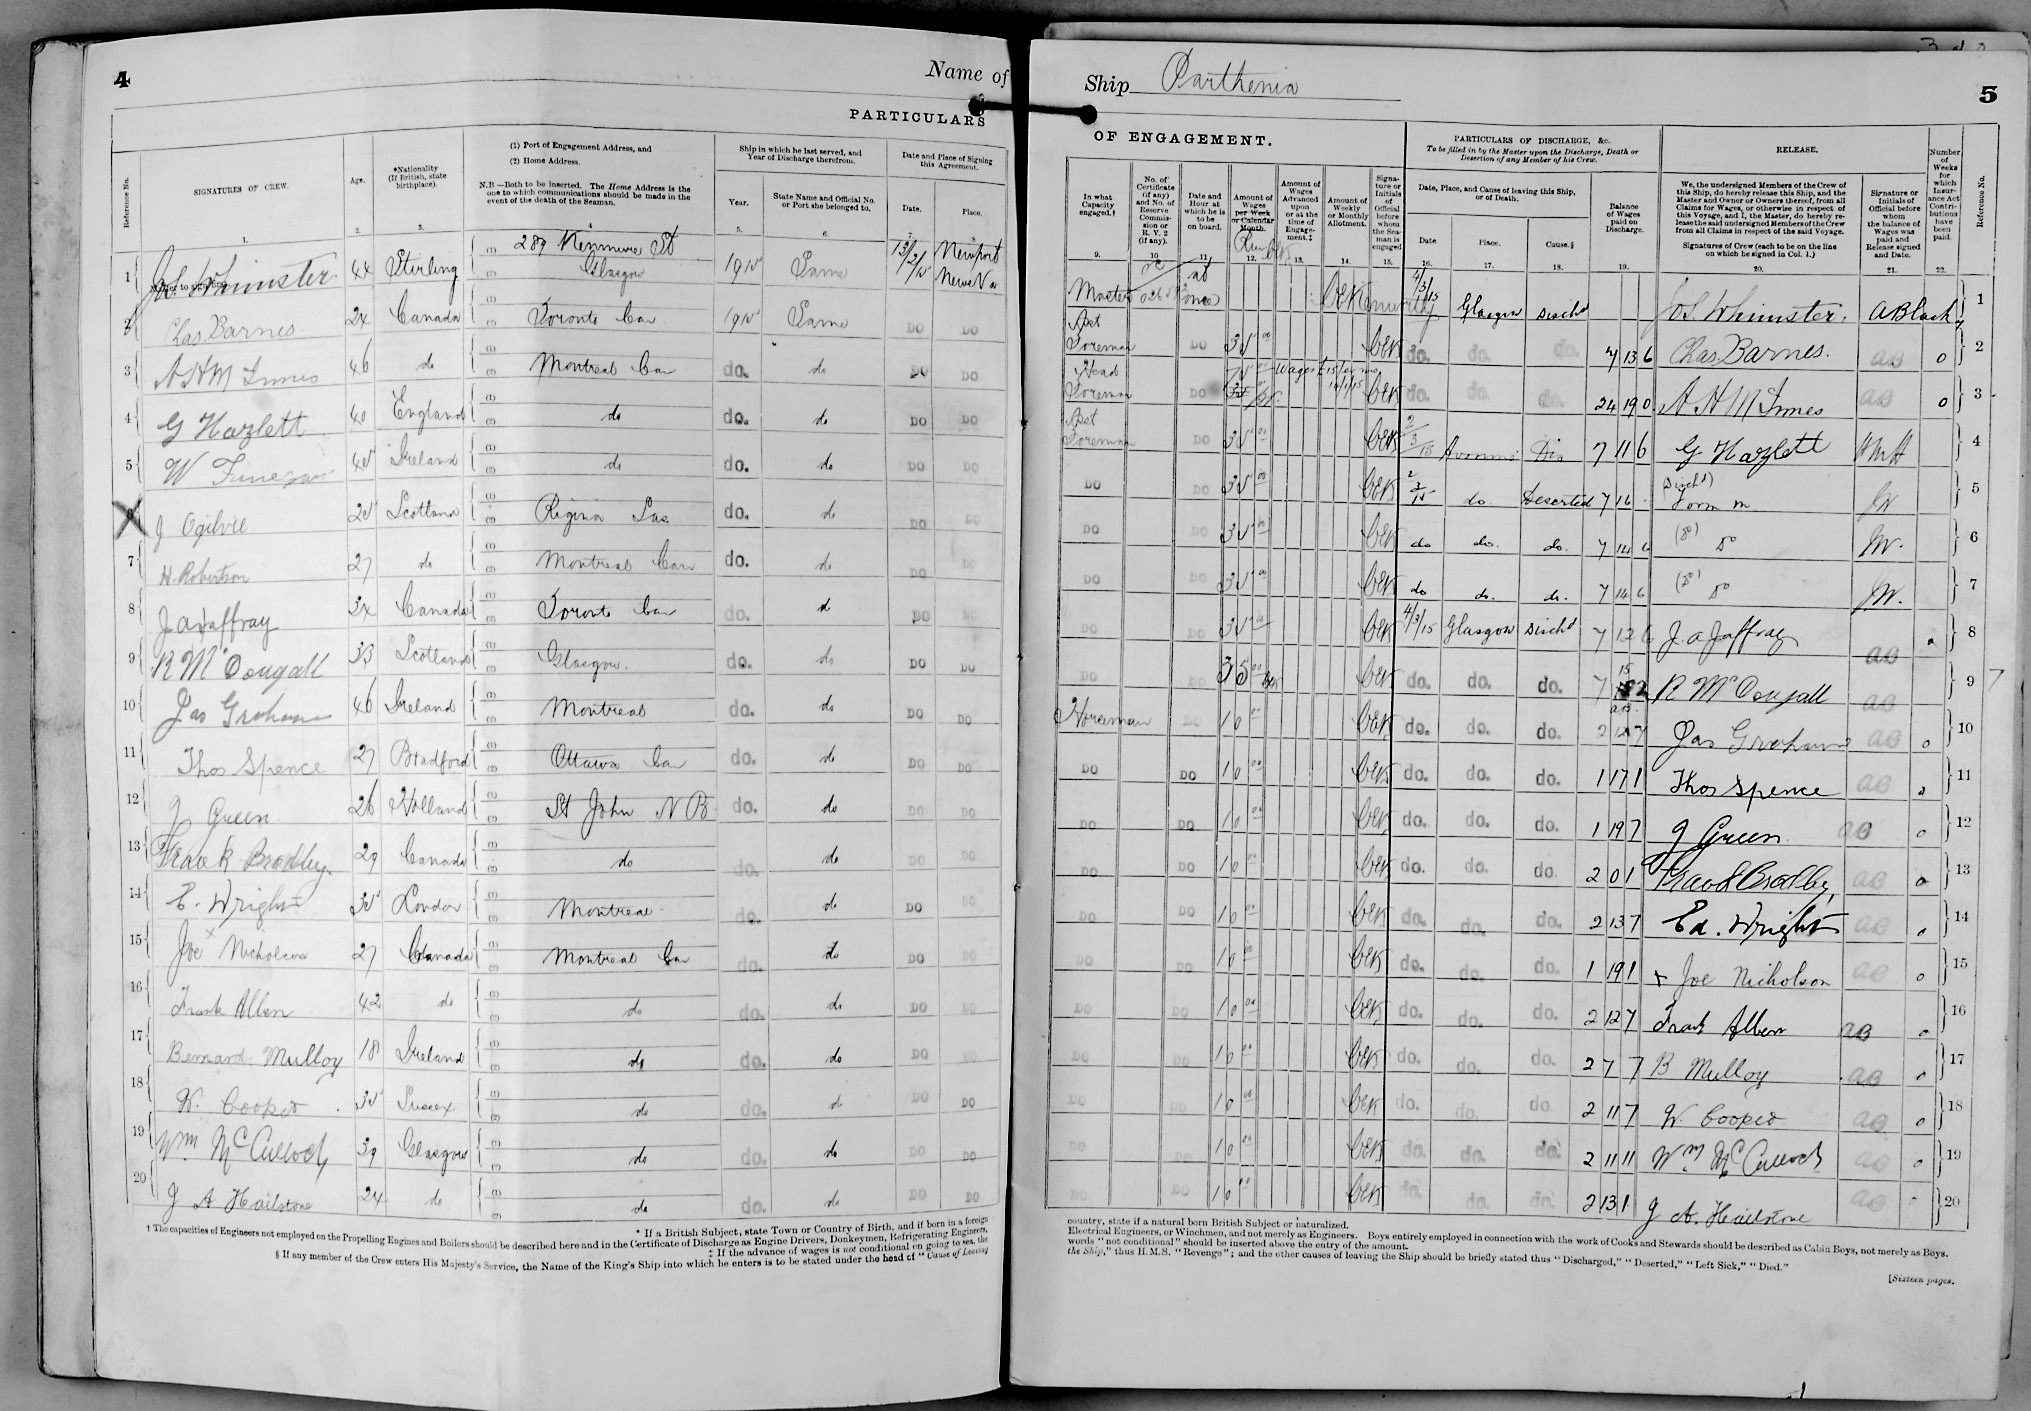 4
Name of
PARTICULARS
Reference No.
SIGNATURES OF CREW.
Age.
*Nationality (If British, state birthplace).
(1) Port of Engagement Address, and
(2) Home Address.
N.B.—Both to be inserted. The Home Address is the one to which communications should be made in the event of the death of the Seaman.
Ship in which he last served, and Year of Discharge therefrom.
Year.
State Name and Official No. or Port she belonged to.
Date and Place of Signing this Agreement.
Date.
Place.
1. 2. 3. 4. 5. 6. 7. 8.
1 Jas. Whimster 44 Stirling 289 Kenmure St Glasgow 1915 Same 13/2/15 Newport News Va
Master to sign first.
2 Chas. Barnes 24 Canada Toronto Can 1915 Same DO DO
3 A H McInnes 46 do Montreal Can do. do DO DO
4 G Hazlett 40 England do do. do DO DO
5 W 45 Ireland do do. do DO DO
6 J Ogilvie 25 Scotland Regina Sas. do. do DO DO
7 H. Robertson 27 do Montreal Can do. do DO DO
8 J A Jaffray 34 Canada Toronto Can do. d DO DO
9 R McDougall 33 Scotland Glasgow. do. do DO DO
10 Jas Graham 46 Ireland Montreal do. do DO DO
11 Thos Spence 27 Bradford Ottawa Can do. do DO DO
12 J Green 26 Holland St John N B do. do DO DO
13 Frank Bradley. 29 Canada do do. do DO DO
14 E. Wright 35 London Montreal do. do DO DO
15 Joe x Nicholson 27 Canada Montreal Can do. do DO DO
16 Frank Allen 42 do do do. do DO DO
17 Bernard Mulloy 18 Ireland do do. do DO DO
18 W. Cooper 35 Sussex do do. do DO DO
19 Wm McCulloch 39 Glasgow do do. do DO DO
20 J A Hailstone 24 do do do. do DO DO
* If a British Subject, state Town or Country of Birth, and if born in a foreign
† The capacities of Engineers not employed on the Propelling Engines and Boilers should be described here and in the Certificate of Discharge as Engine Drivers, Donkeymen, Refrigerating Engineers,
‡ If the advance of wages is not conditional on going to sea, the
§ If any member of the Crew enters His Majesty's Service, the Name of the King's Ship into which he enters is to be stated under the head of "Cause of Leaving
Ship Parthenia
5
OF ENGAGEMENT.
PARTICULARS OF DISCHARGE, &c.
To be filled in by the Master upon the Discharge, Death or Desertion of any Member of his Crew.
RELEASE.
In what Capacity engaged.†
No. of Certificate (if any) and No. of Reserve Commission or R.V.2 (if any).
Date and Hour at which he is to be on board.
Amount of Wages per Week or Calendar Month.
Amount of Wages Advanced upon or at the time of Engagement.‡
Amount of Weekly or Monthly Allotment.
Signature or Initials of Official before whom the Seaman is engaged
Date, Place, and Cause of leaving this Ship, or of Death.
Date.
Place.
Cause.§
Balance of Wages paid on Discharge.
We, the undersigned Members of the Crew of this Ship, do hereby release this Ship, and the Master and Owner or Owners thereof, from all Claims for Wages, or otherwise in respect of this Voyage, and I, the Master, do hereby release the said undersigned Members of the Crew from all Claims in respect of the said Voyage.
Signatures of Crew (each to be on the line on which he signed in Col. 1.)
Signature or Initials of Official before whom the balance of Wages was paid and Release signed and Date.
Number of Weeks for which Insurance Act Contributions have been paid.
Reference No.
9. 10. 11. 12. 13. 14. 15. 16. 17. 18. 19. 20. 21. 22.
Master at once 4/3/15 Glasgow Dischd Jas. Whimster. A Black 1
Asst Foreman DO 35 00 do. do. do. 7 13 6 Chas Barnes. AB 0 2
Head Foreman DO Wages £15 per mo do. do. do. 24 19 0 A H McInnes AB 0 3
Asst Foreman DO 35 00 2/3/15 Dis 7 11 6 G Hazlett 4
DO DO 35 00 2/3/15 do Deserted 7 16 - Form m JW 5
DO DO 35 00 do do. do. 7 14 6 (do) Do JW. 6
DO DO 35 00 do do. do. 7 14 6 (do) Do JW. 7
DO DO 35 00 4/3/15 Glasgow Dischd 7 12 6 J. A Jaffray AB 8
DO DO 35 00 do. do. do. 7 15 2 R McDougall AB 9
Horseman DO 10 00 do. do. do. 2 7 Jas Graham AB 0 10
DO DO 10 00 do. do. do. 1 17 1 Thos Spence AB 0 11
DO DO 10 00 do. do. do. 1 19 7 J Green AB 0 12
DO DO 10 00 do. do. do. 2 0 1 Frank Bradley AB 0 13
DO DO 10 00 do. do. do. 2 13 7 Ed. Wright AB 0 14
DO DO 10 00 do. do. do. 1 19 1 x Joe Nicholson AB 0 15
DO DO 10 00 do. do. do. 2 12 7 Frank Allen AB 0 16
DO DO 10 00 do. do. do. 2 7 7 B Mulloy AB 0 17
DO DO 10 00 do. do. do 2 11 7 W. Cooper AB 0 18
DO DO 10 00 do. do. do. 2 11 11 Wm McCulloch AB 0 19
DO DO 10 00 do. do. do. 2 13 1 J A. Hailstone AB 20
country, state if a natural born British Subject or naturalized.
Electrical Engineers, or Winchmen, and not merely as Engineers. Boys entirely employed in connection with the work of Cooks and Stewards should be described as Cabin Boys, not merely as Boys.
words "not conditional" should be inserted above the entry of the amount.
the Ship," thus H.M.S. "Revenge"; and the other causes of leaving the Ship should be briefly stated thus "Discharged," "Deserted," "Left Sick," "Died."
[Sixteen pages.